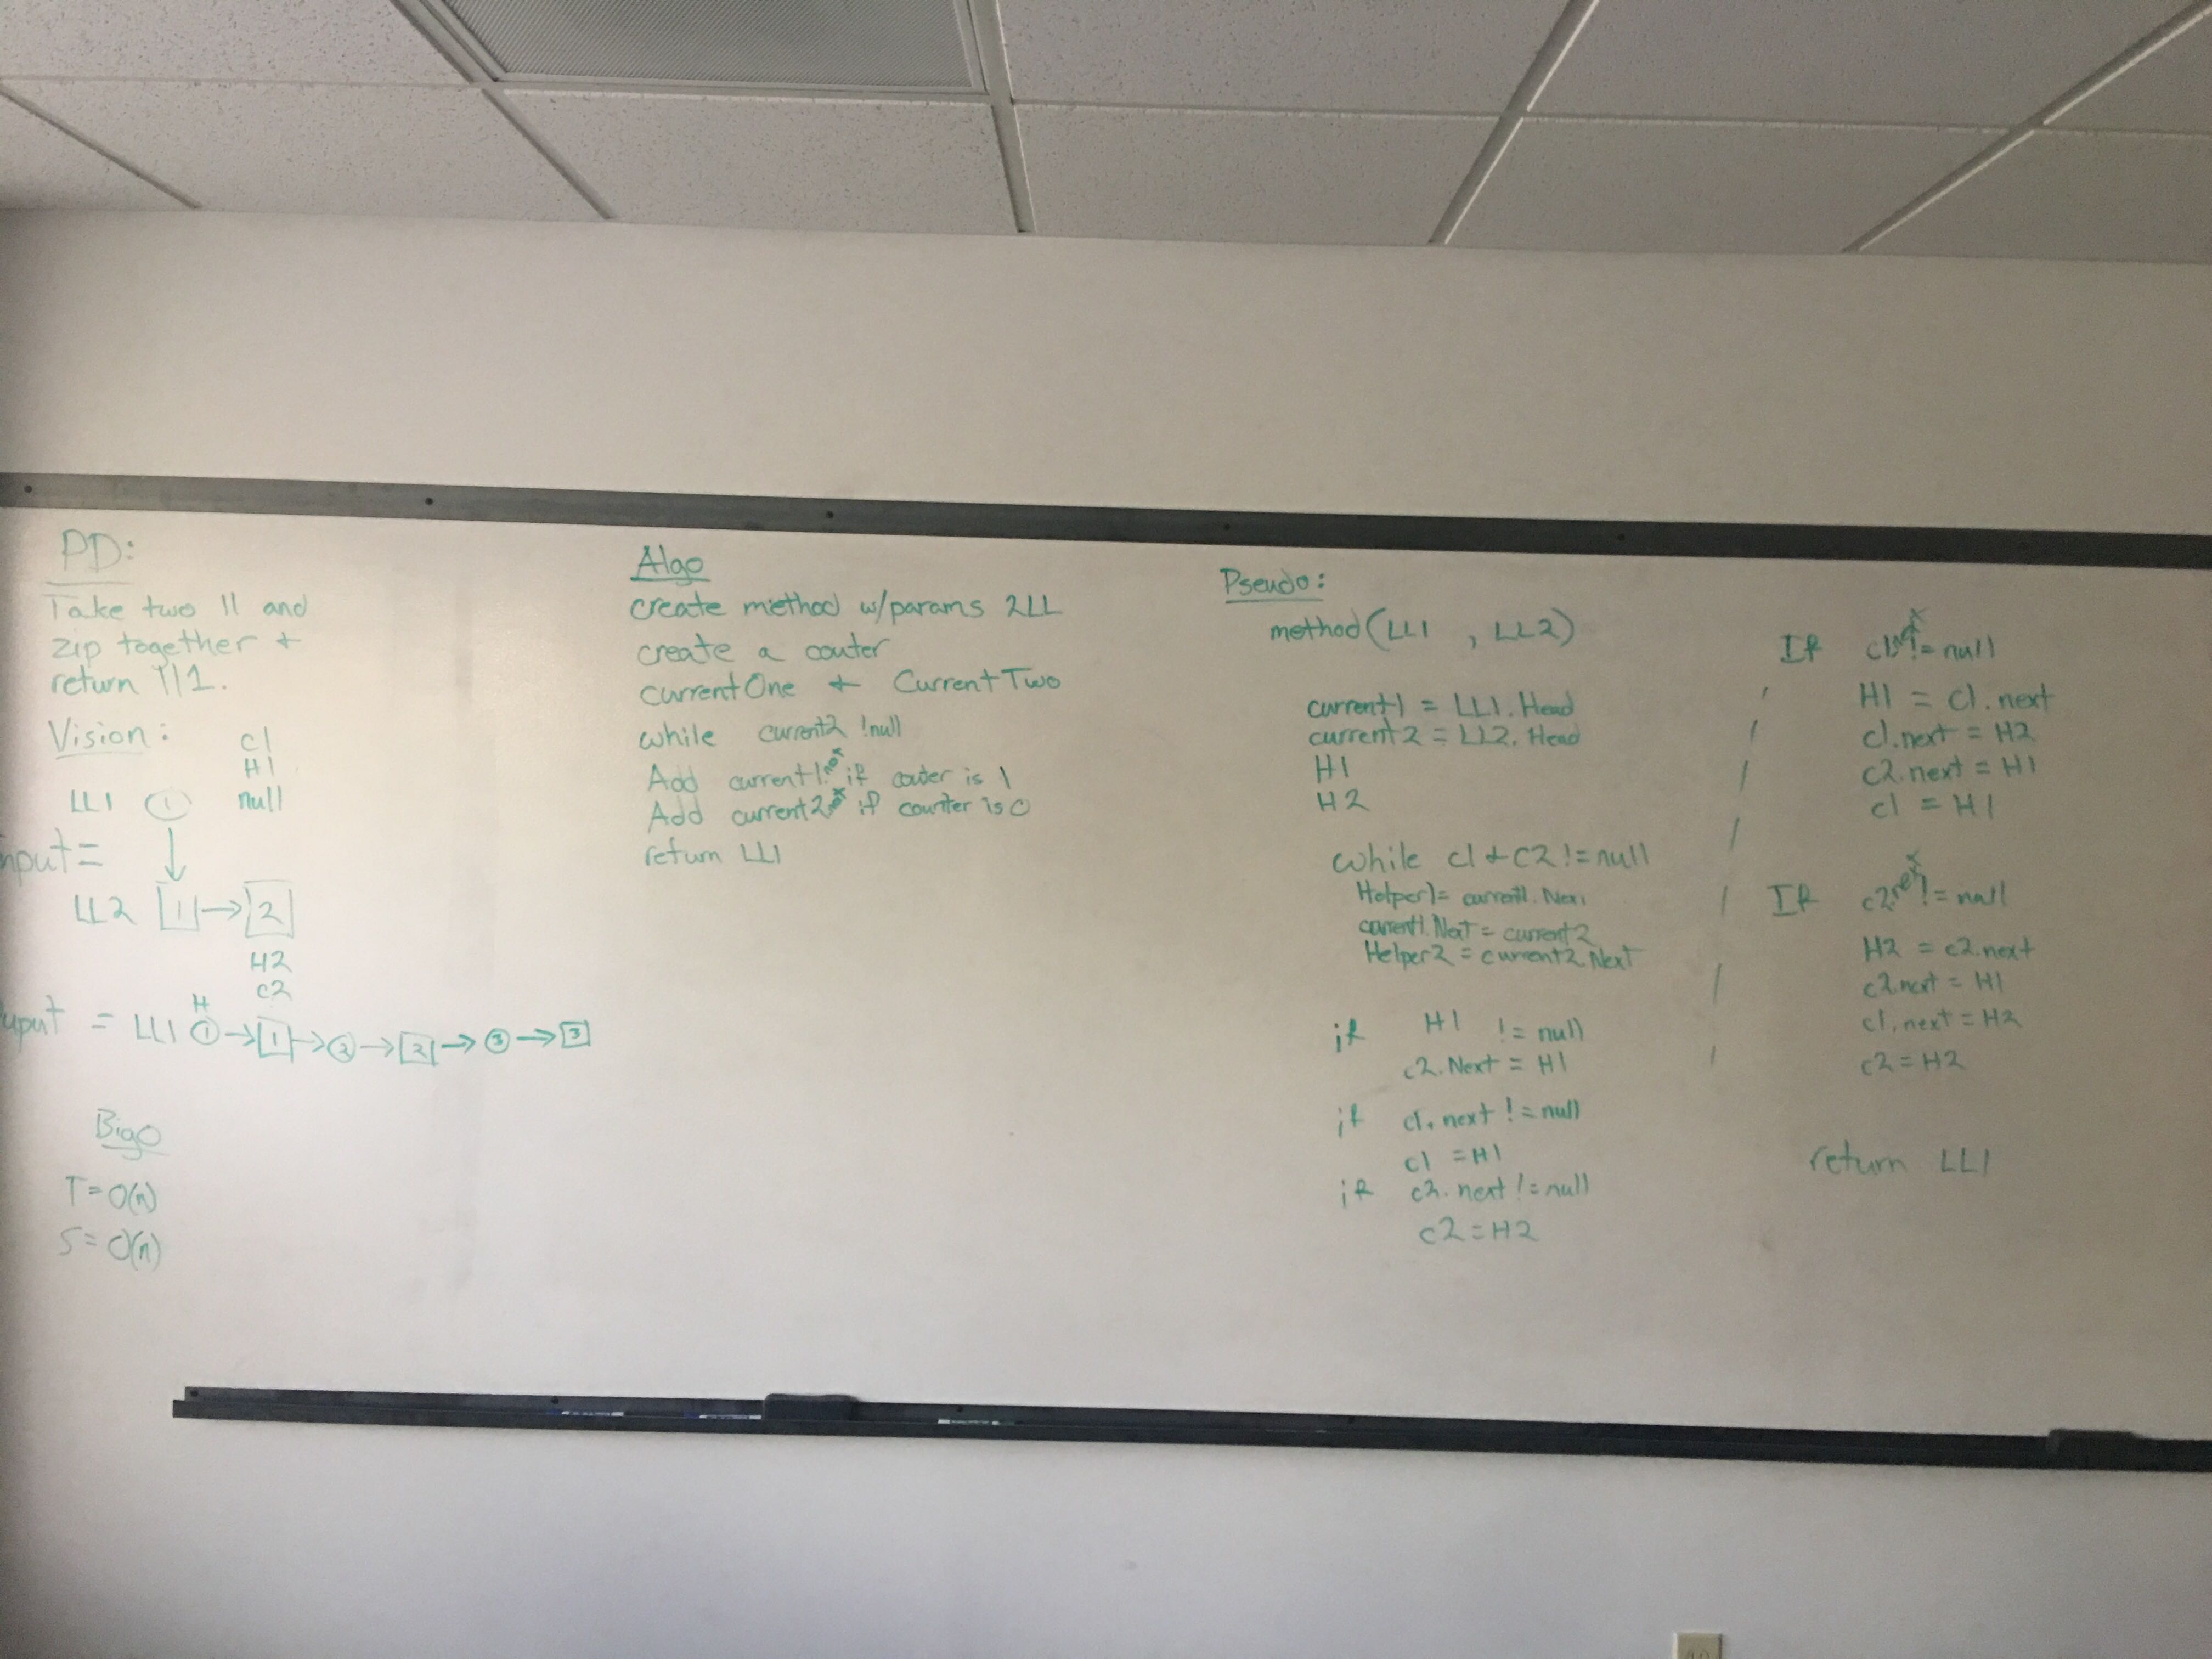 PD:
Take two ll and
zip together +
return ll1.
Vision:
c1
H1
LL1 1 null
nput =
LL2 1 → 2
H2
c2
H
uput = LL1 1 → 1 → 2 → 2 → 3 → 3
BigO
T = O(n)
S = O(n)
Algo
create method w/params 2LL
create a couter
currentOne + CurrentTwo
while current2 !null
Add current1.next if couter is 1
Add current2.next if counter is 0
return LL1
Pseudo:
method(LL1 , LL2)
current1 = LL1.Head
current2 = LL2.Head
H1
H2
while c1 + c2 != null
Helper1= current1.Next
current1.Next = current2
Helper2 = current2.Next
if H1 != null
c2.Next = H1
if c1.next != null
c1 = H1
if c2.next != null
c2 = H2
If c1.next != null
H1 = c1.next
c1.next = H2
c2.next = H1
c1 = H1
If c2.next != null
H2 = c2.next
c2.next = H1
c1.next = H2
c2 = H2
return LL1